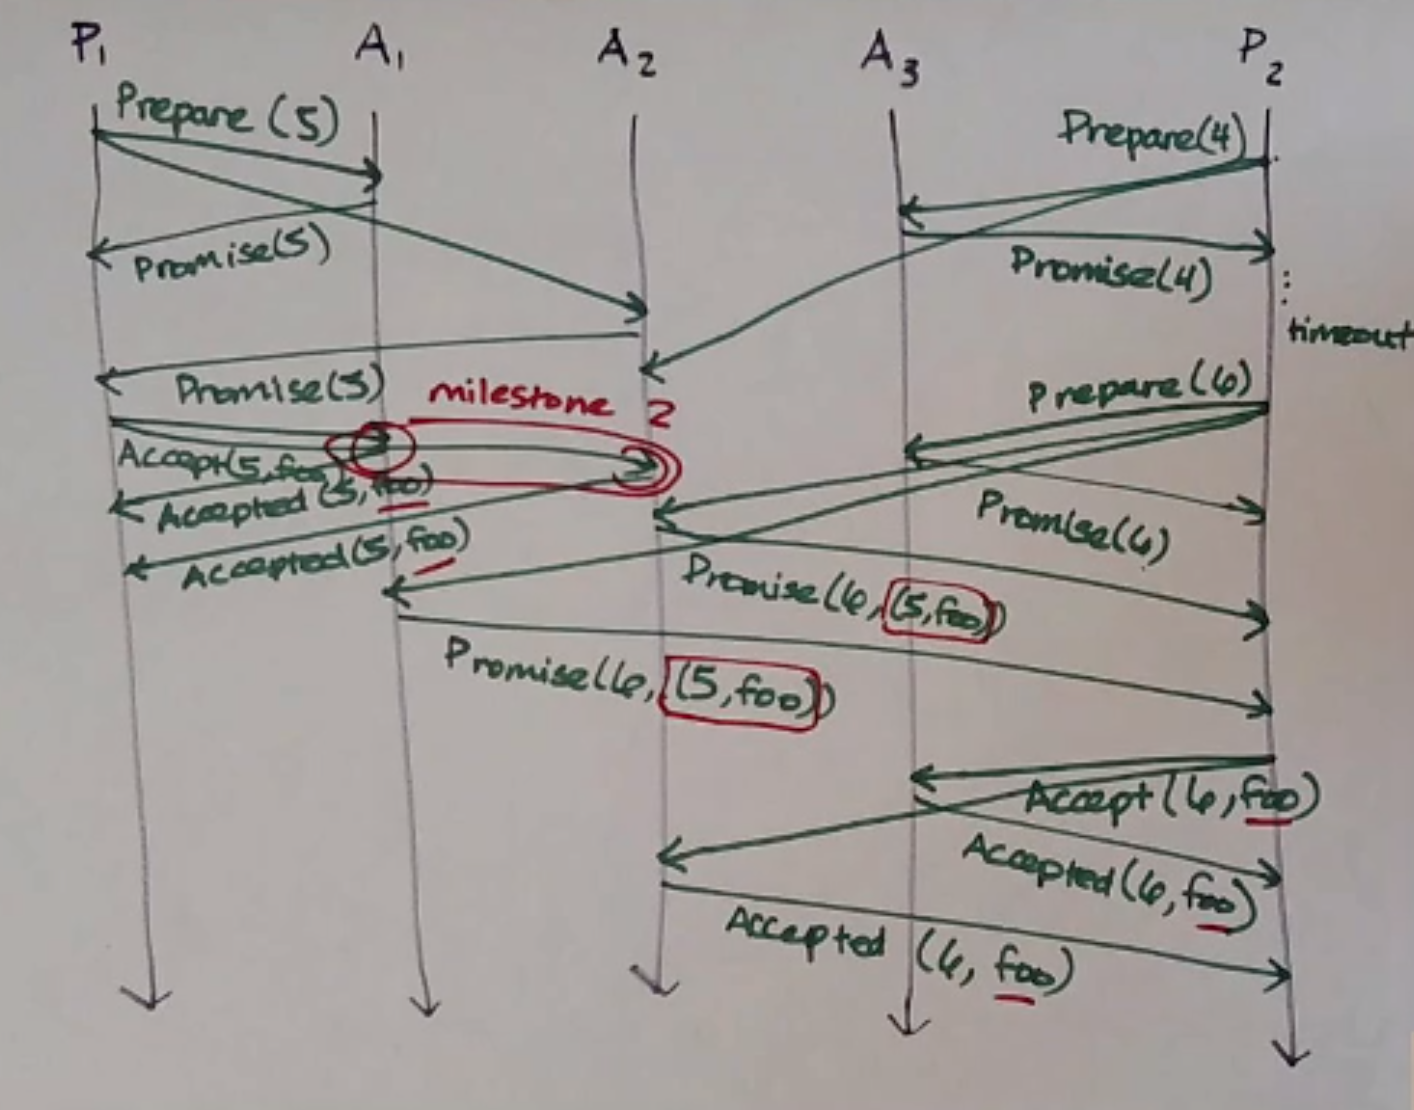 P1 A1 A2 A3 P2
Prepare (5)
Prepare(4)
Promise(5)
Promise(4)
timeout
Promise(5)
Prepare (6)
milestone 2
Accept(5,foo)
Accepted (5,foo)
Promise(6)
Accepted(5,foo)
Promise(6,(5,foo))
Promise(6,(5,foo))
Accept(6,foo)
Accepted(6,foo)
Accepted (6, foo)